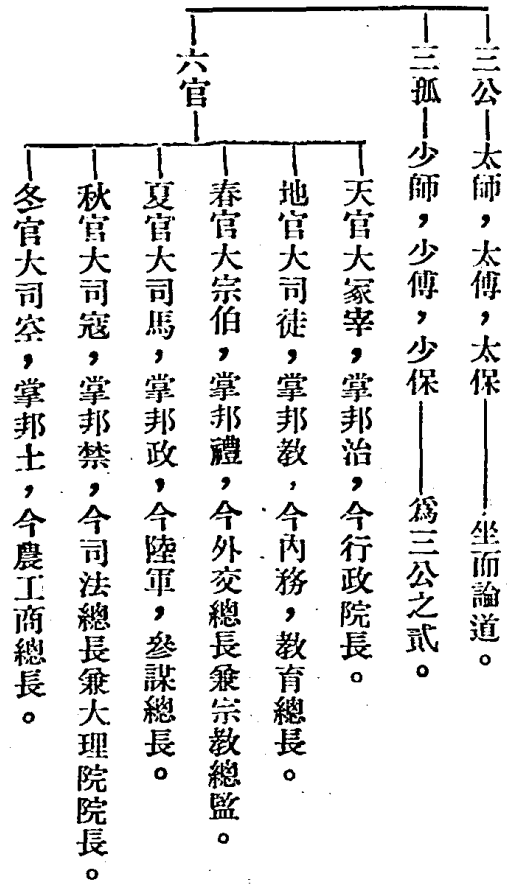 三公—太師，太傅，太保——坐而論道。
三孤—少師，少傅，少保——爲三公之貳。
六官
天官大冢宰，掌邦治，今行政院長。
地官大司徒，掌邦教，今內務，教育總長。
春官大宗伯，掌邦禮，今外交總長兼宗教總監。
夏官大司馬，掌邦政，今陸軍，參謀總長。
秋官大司寇，掌邦禁，今司法總長兼大理院院長。
冬官大司空，掌邦土，今農工商總長。